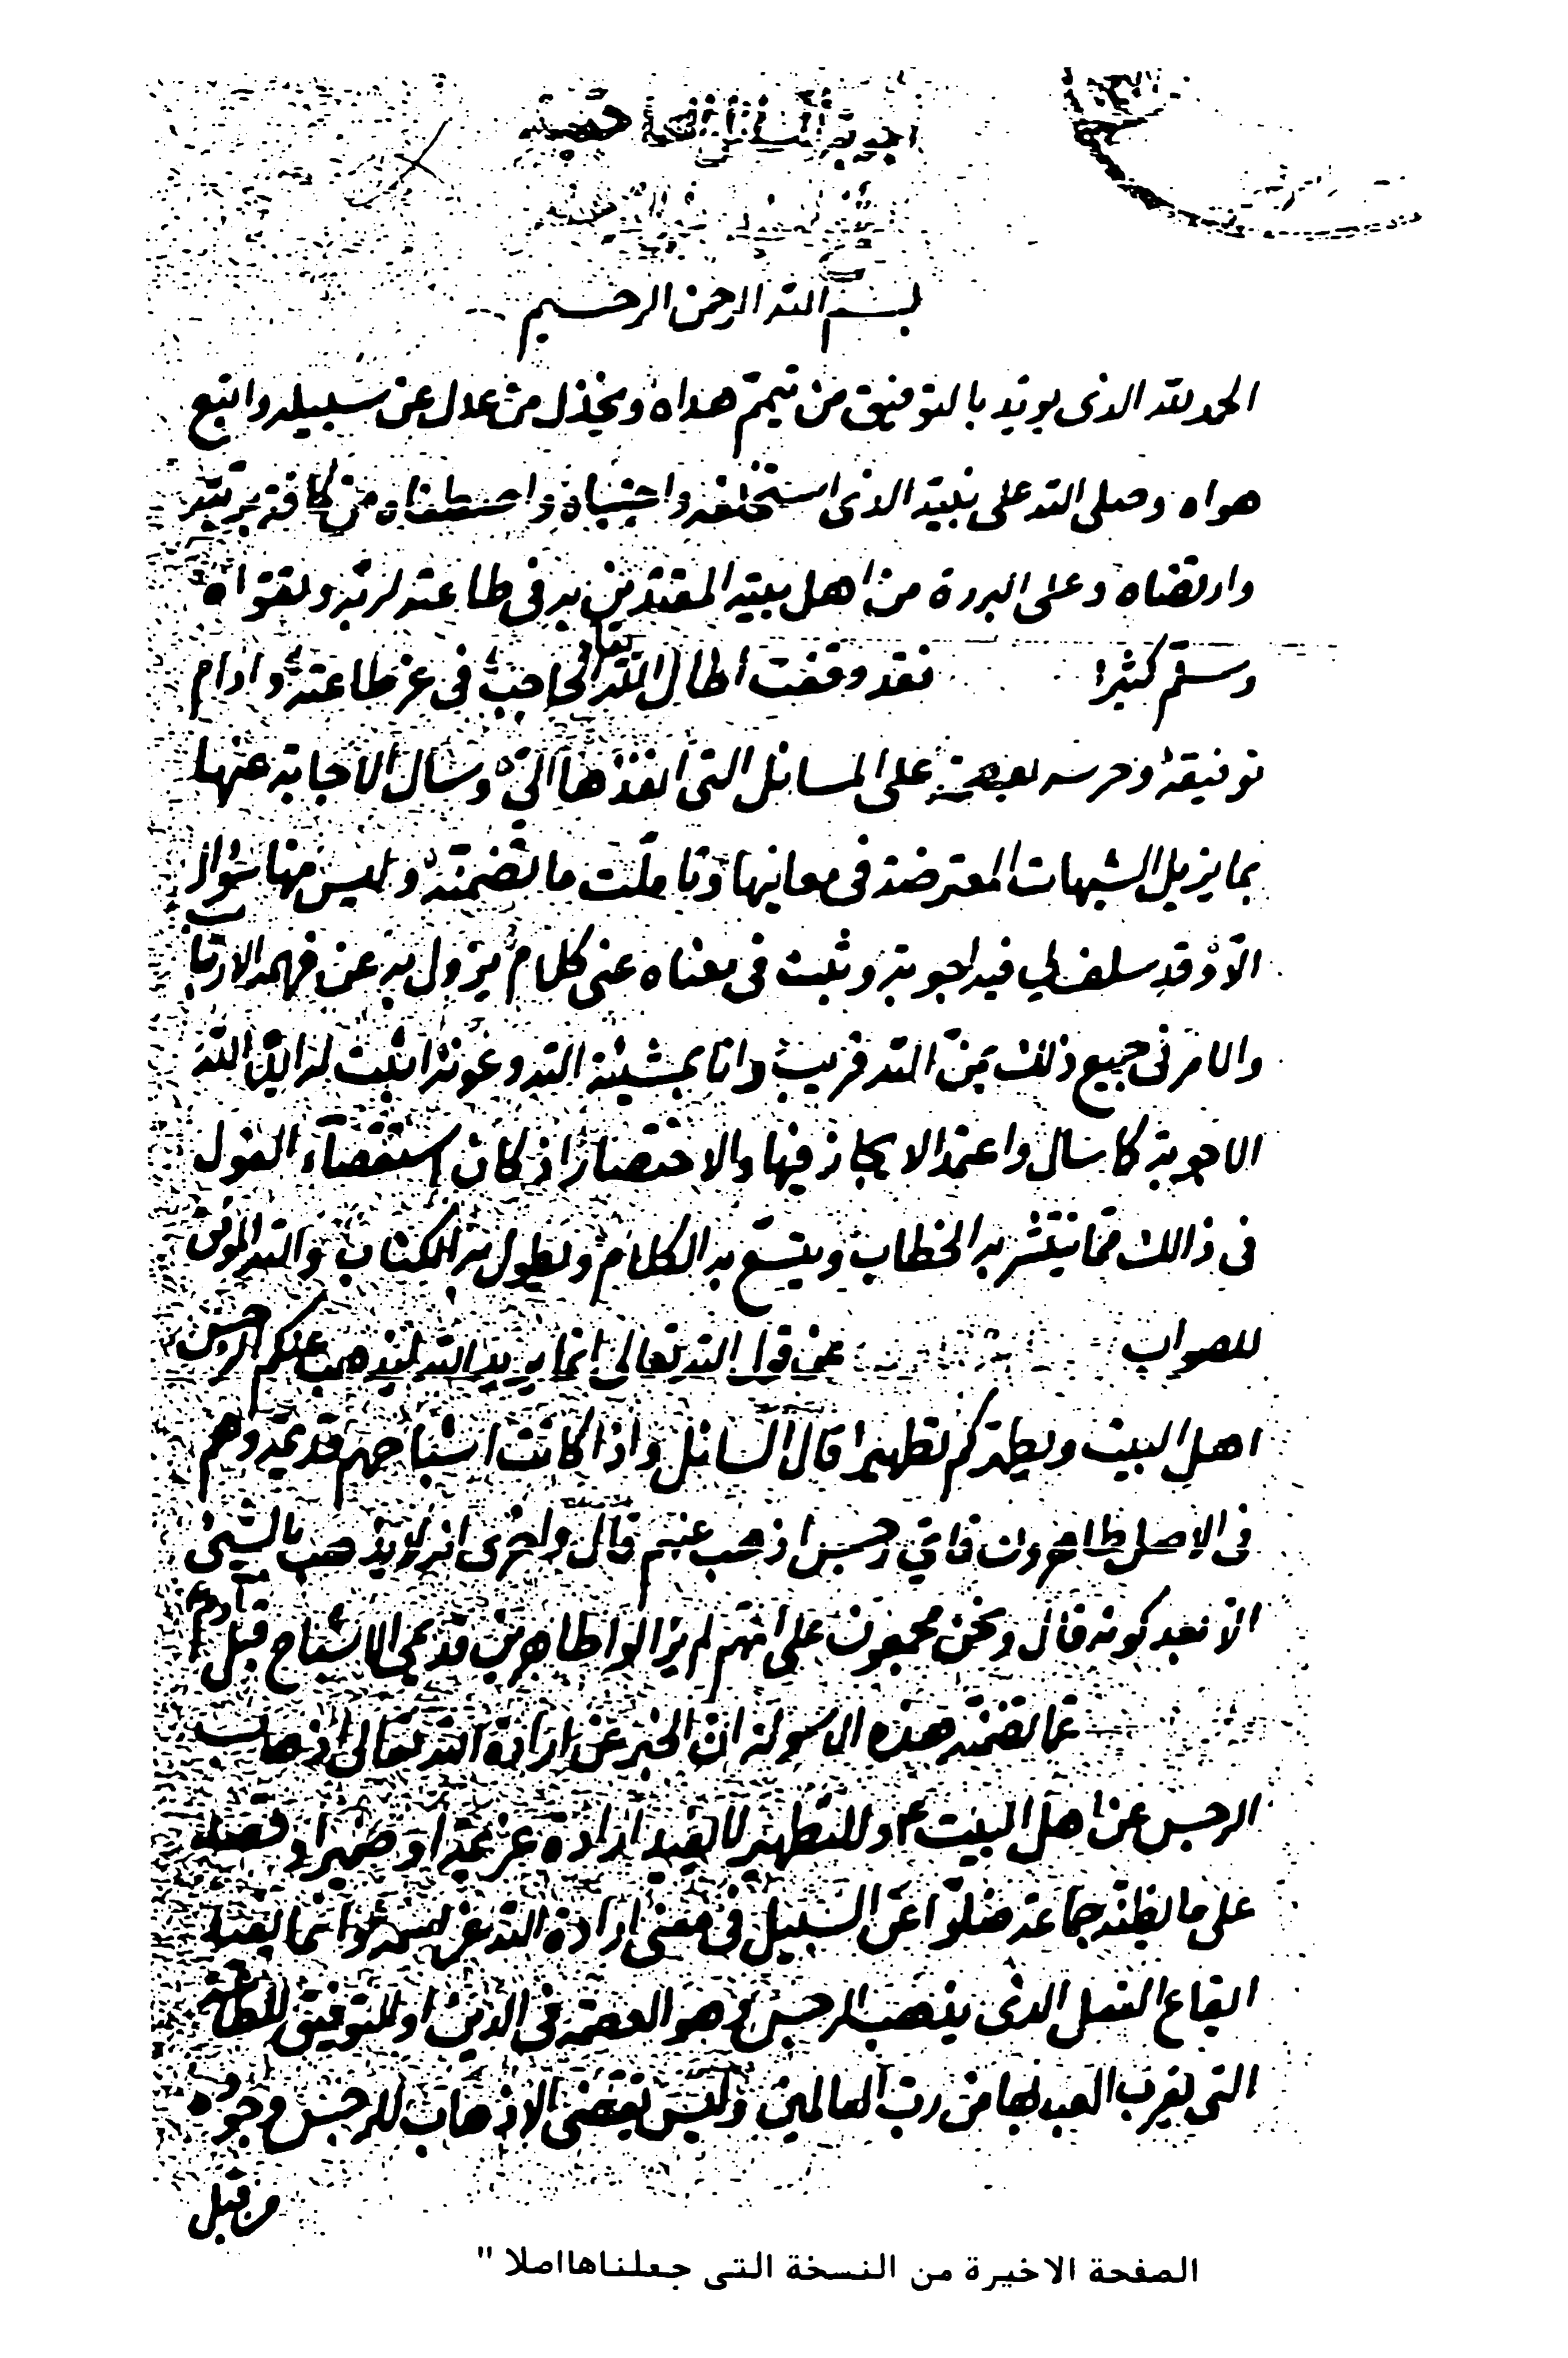 بسم الله الرحمن الرحيم
الحمد لله الذى يويد بالتوفيق من تيمم هداه ويخذل من عدل عن سبيله واتبع
هواه وصلى الله على نبيه الذى استخلصه واجتباه واصطفاه من كافة بريته
وارتضاه وعلى البررة من اهل بيته المقتدين به فى طاعته لربه وتقواه
وسلم كثيرا فقد وقفت اطال الله بقاء الحاجب فى عز طاعته وادام
توفيقه وحرسه على المسائل التى انفذها الي وسال الاجابة عنها
بما يزيل الشبهات المعترضة فى معانيها وتاملت ما تضمنته وليس منها سوال
الا وقد سلف لي فيه اجوبة وثبت فى معناه عنى كلام يزول به عن فهمه الارتياب
والامر فى جميع ذلك بمن الله قريب وانا بمشيئة الله وعونه اثبت له ايده الله
الاجوبة كما سال واعتمد الايجاز فيها والاختصار اذ كان استقصاء القول
فى ذالك مما ينتشر به الخطاب ويتسع به الكلام ويطول به الكتاب والله الموفق
للصواب عن قول الله تعالى انما يريد الله ليذهب عنكم الرجس
اهل البيت ويطهركم تطهيرا قال السائل واذا كانت اشباحهم قديمة وهم
فى الاصل طاهرون فاي رجس اذهب عنهم قال واخرى انه لا يذهب بالشيئ
الا بعد كونه قال ونحن مجمعون على انهم لم يزالوا طاهرين قديمى الاشباح قبل آدم
عما تضمنه هذه الاسولة ان الخبر عن ارادة الله تعالى اذهاب
الرجس عن اهل البيت ع وللتطهير لا يفيد ارادة عزيمة او ضمير او قصد
على ما يظنه جماعة ضلوا عن السبيل فى معنى ارادة الله عز اسمه وانما يفيد
ايقاع الفعل الذى يذهب الرجس وهو العصمة فى الدين او للتوفيق للطاعة
التى يقرب العبد بها من رب العالمين وليس يقتضى الاذهاب للرجس وجوده
من قبل
الصفحة الاخيرة من النسخة التى جعلناها اصلا "